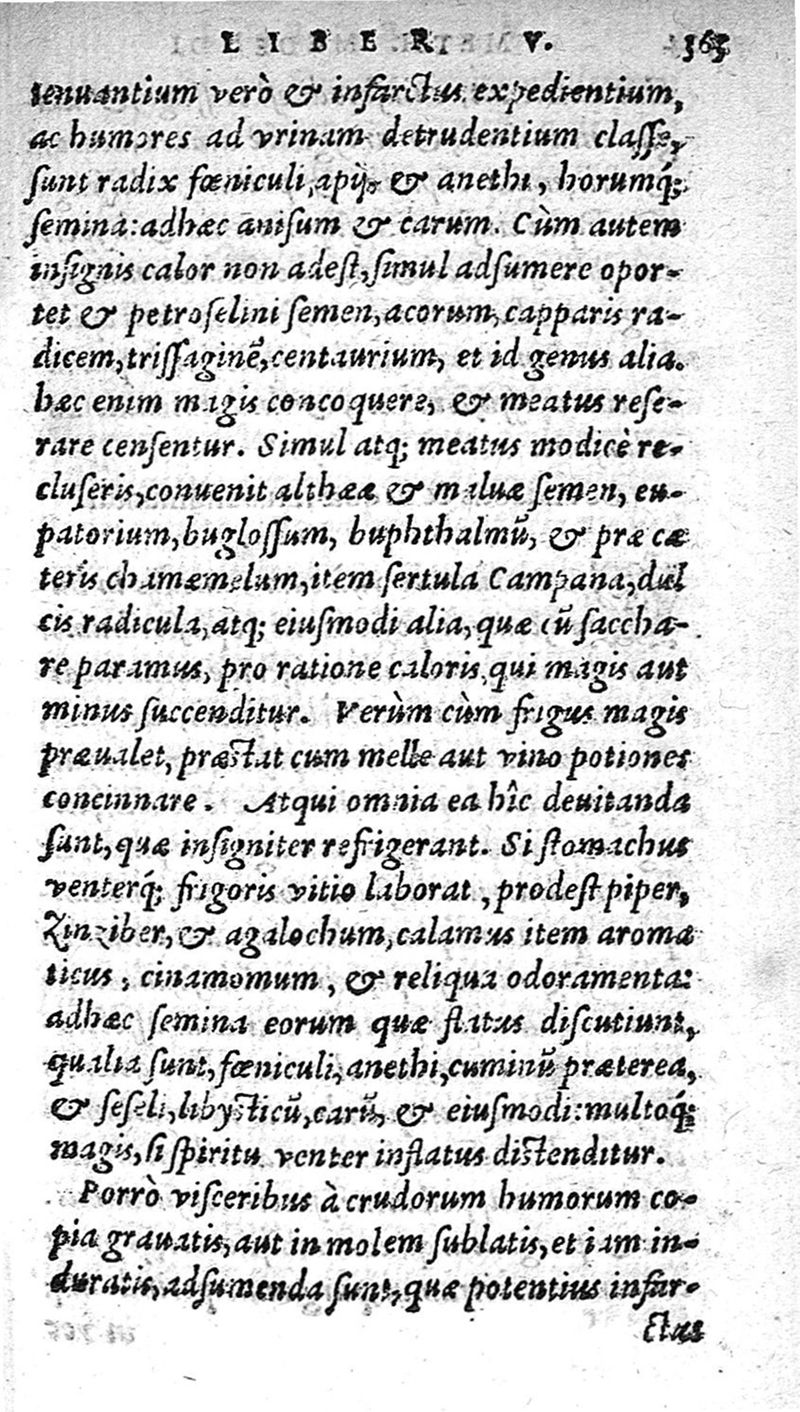 LIBER V. 363
tenuantium verò & infarctus expedientium,
ac humores ad vrinam detrudentium classe,
sunt radix fœniculi, apij, & anethi, horumq́;
semina: adhæc anisum & carum. Cùm autem
insignis calor non adest, simul adsumere opor-
tet & petroselini semen, acorum, capparis ra-
dicem, trissaginẽ, centaurium, et id genus alia.
hæc enim magis concoquere, & meatus rese-
rare censentur. Simul atq; meatus modicè re-
cluseris, conuenit althææ & maluæ semen, eu-
patorium, buglossum, buphthalmũ, & præ cæ
teris chamæmelum, item sertula Campana, dul
cis radicula, atq; eiusmodi alia, quæ cũ saccha-
re paramus, pro ratione caloris, qui magis aut
minus succenditur. Verùm cùm frigus magis
præualet, præstat cum melle aut vino potiones
concinnare. Atqui omnia ea hîc deuitanda
sunt, quæ insigniter refrigerant. Si stomachus
venterq́; frigoris vitio laborat, prodest piper,
Zinziber, & agalochum, calamus item aroma
ticus, cinamomum, & reliqua odoramenta:
adhæc semina eorum quæ flatus discutiunt,
qualia sunt, fœniculi, anethi, cuminũ præterea,
& seseli, libysticũ, carũ, & eiusmodi: multoq́;
magis, si spiritu venter inflatus distenditur.
Porrò visceribus à crudorum humorum co-
pia grauatis, aut in molem sublatis, et iam in-
duratis, adsumenda sunt, quæ potentius infar-
ctus